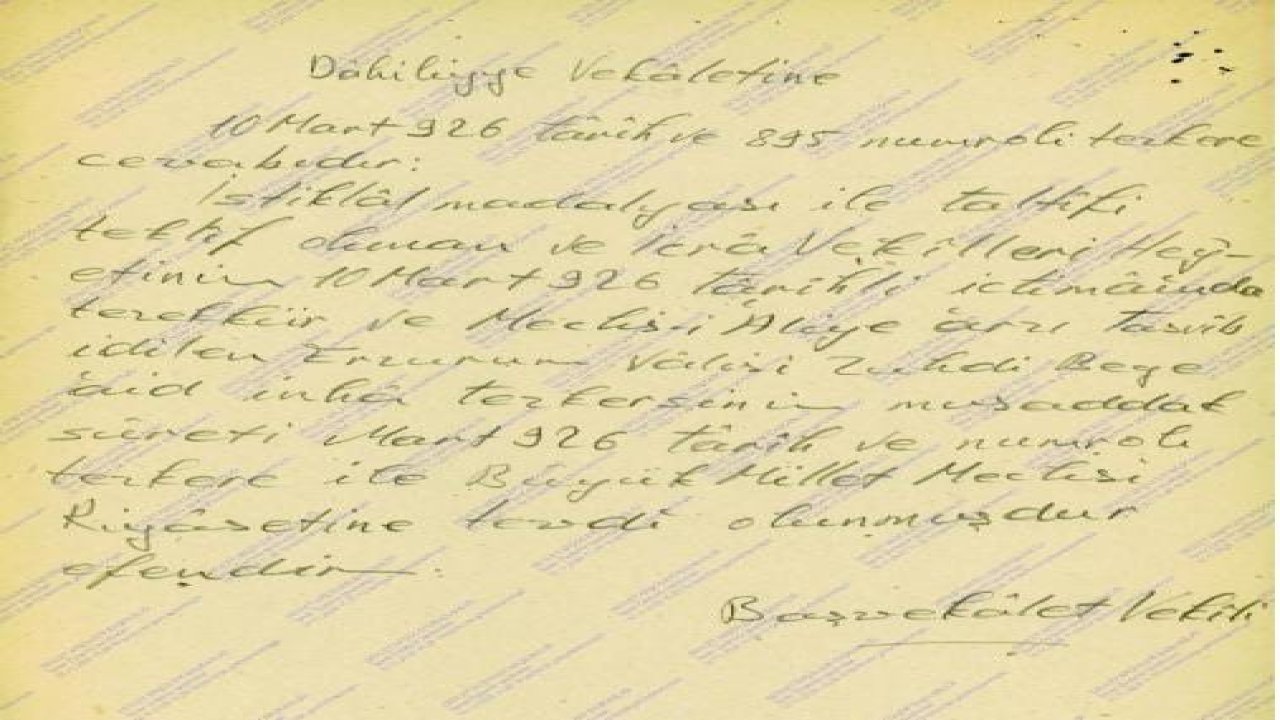 Dâhiliyye Vekâletine
10 Mart 926 târih ve 895 numrolı tezkere
cevabıdır:
İstiklâl madalyası ile taltifi
teklif olunan ve İcrâ Vekilleri Hey-
etinin 10 Mart 926 târihli ictimâında
tezekkür ve Meclis-i Âliye arzı tasvîb
idilen Erzurum Vâlisi Zuhdi Beye
âid inhâ tezkersinin musaddak
sûreti Mart 926 târih ve numrolı
tezkere ile Büyük Millet Meclisi
Riyâsetine tevdi olunmuşdur
efendim.
Başvekâlet Vekili